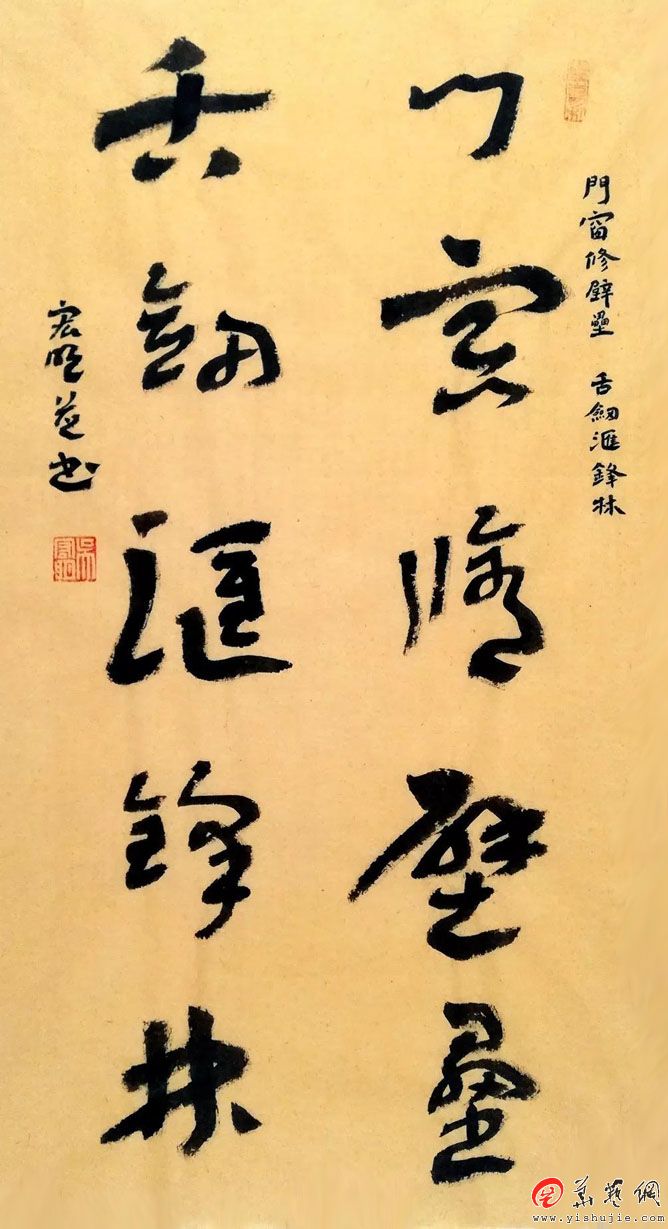 門窗修壁壘 舌劍滙鋒林
门窗修壁壘
舌劍滙鋒林
宏明并书
華藝網
www.yishujie.com